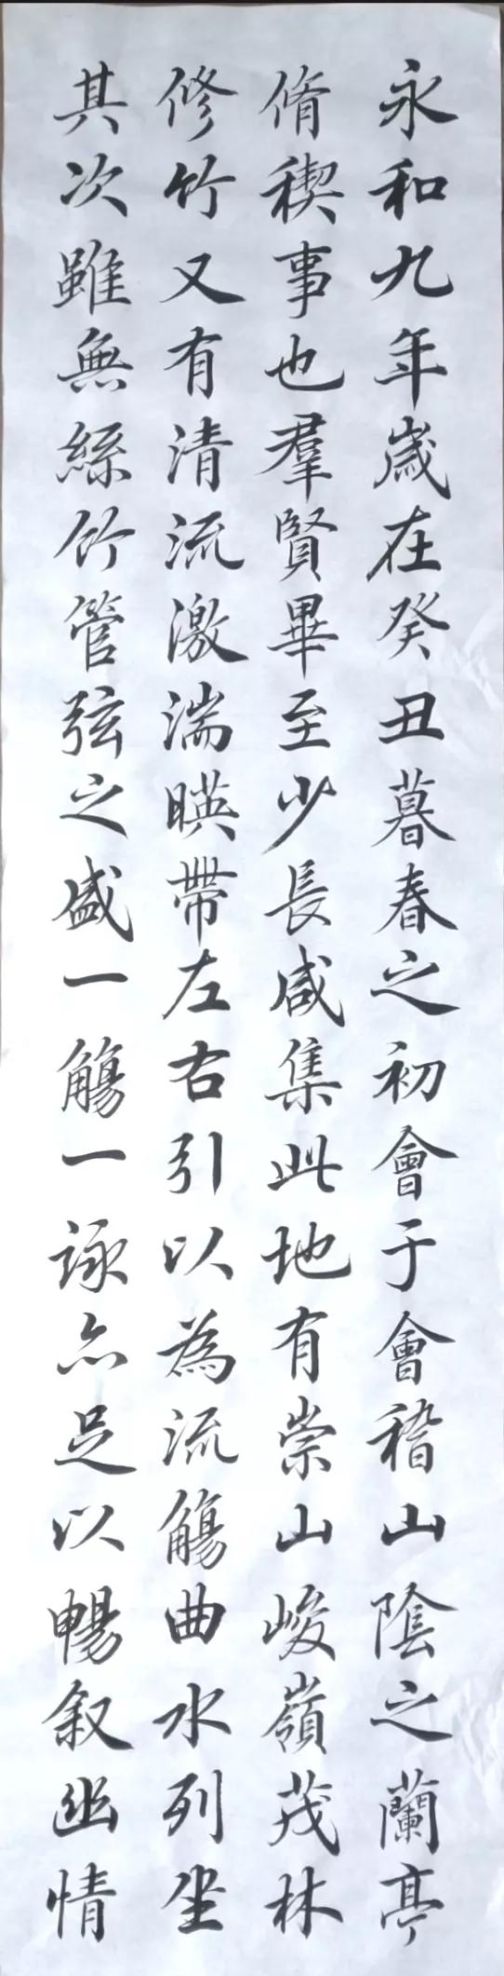 永和九年歲在癸丑暮春之初會于會稽山陰之蘭亭
脩稧事也羣賢畢至少長咸集此地有崇山峻嶺茂林
修竹又有清流激湍暎帶左右引以為流觴曲水列坐
其次雖無絲竹管弦之盛一觴一詠亦足以暢叙幽情